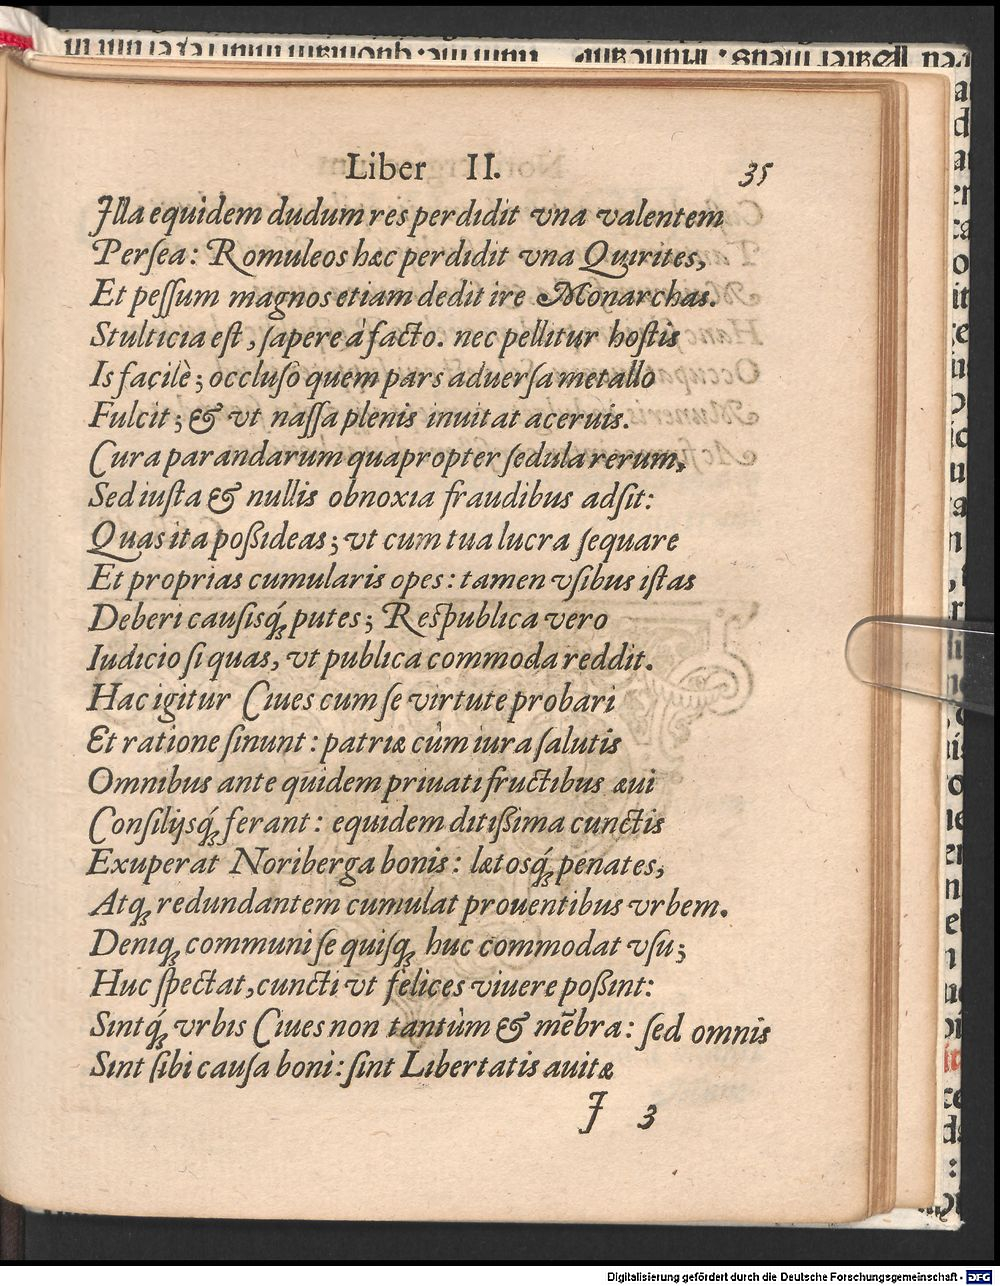 Liber II. 35
Illa equidem dudum res perdidit vna valentem
Perſea: Romuleos hæc perdidit vna Quirites,
Et peſſum magnos etiam dedit ire Monarchas.
Stulticia eſt, ſapere à facto. nec pellitur hoſtis
Is facilè; occluſo quem pars aduerſa metallo
Fulcit; & vt naſſa plenis inuitat aceruis.
Cura parandarum quapropter ſedula rerum,
Sed iuſta & nullis obnoxia fraudibus adſit:
Quas ita poßideas; vt cum tua lucra ſequare
Et proprias cumularis opes: tamen vſibus iſtas
Deberi cauſisq́; putes; Reſpublica vero
Iudicio ſi quas, vt publica commoda reddit.
Hac igitur Ciues cum ſe virtute probari
Et ratione ſinunt: patriæ cùm iura ſalutis
Omnibus ante quidem priuati fructibus æui
Conſilijsq́; ferant: equidem ditißima cunctis
Exuperat Noriberga bonis: lætosq́; penates,
Atq; redundantem cumulat prouentibus vrbem.
Deniq; communi ſe quiſq; huc commodat vſu;
Huc ſpectat, cuncti vt felices viuere poßint:
Sintq́; vrbis Ciues non tantùm & mēbra: ſed omnis
Sint ſibi cauſa boni: ſint Libertatis auitæ
I 3
Digitalisierung gefördert durch die Deutsche Forschungsgemeinschaft - DFG